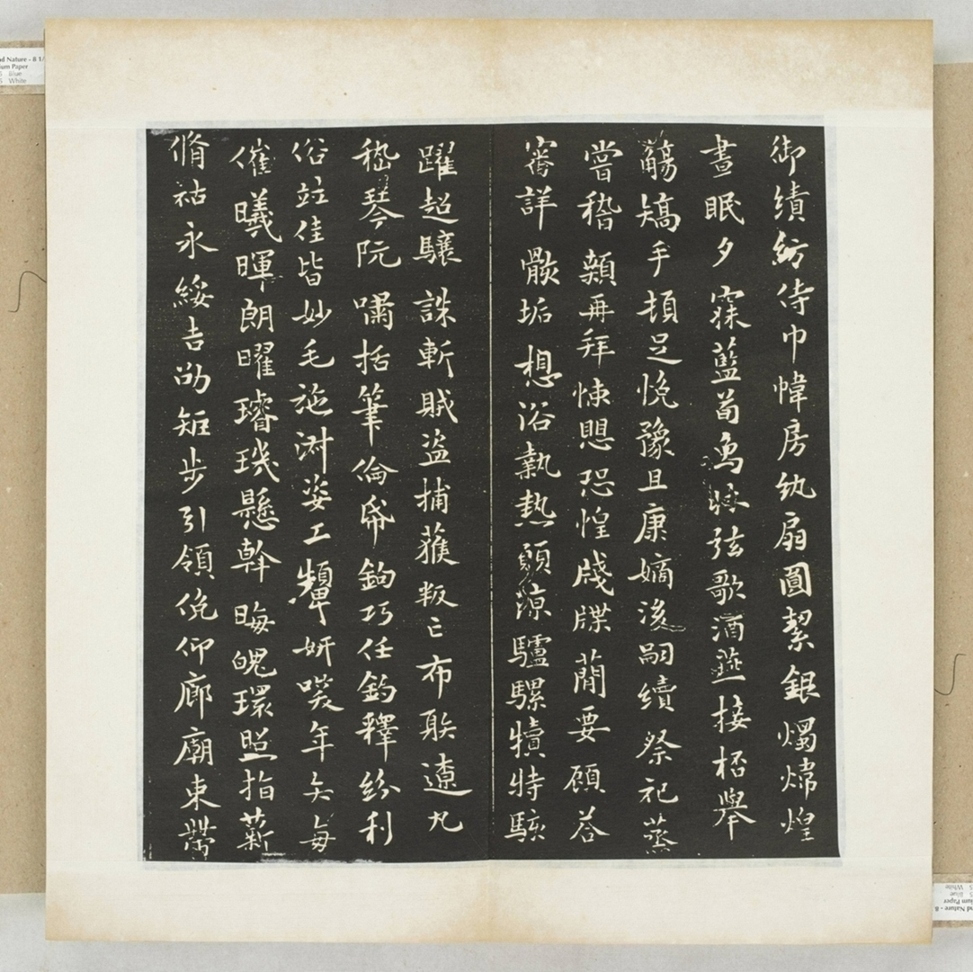 御績紡侍巾幃房紈扇圓絜銀燭煒煌
晝眠夕寐藍荀象牀弦歌酒燕接桮舉
觴矯手頓足悅豫且康嫡後嗣續祭祀蒸
嘗稽顙再拜悚懼恐惶牋牒簡要顧荅
審詳骸垢想浴執熱願涼驢騾犢特駭
躍超驤誅斬賊盜捕獲叛亡布射遼丸
嵇琴阮嘯恬筆倫紙鈞巧任釣釋紛利
俗竝佳皆妙毛施淑姿工顰妍笑年矢每
催曦暉朗曜璿璣懸斡晦魄環照指薪
脩祜永綏吉劭矩步引領俛仰廊廟束帶
nd Nature - 8 1/
ium Paper
Blue
White